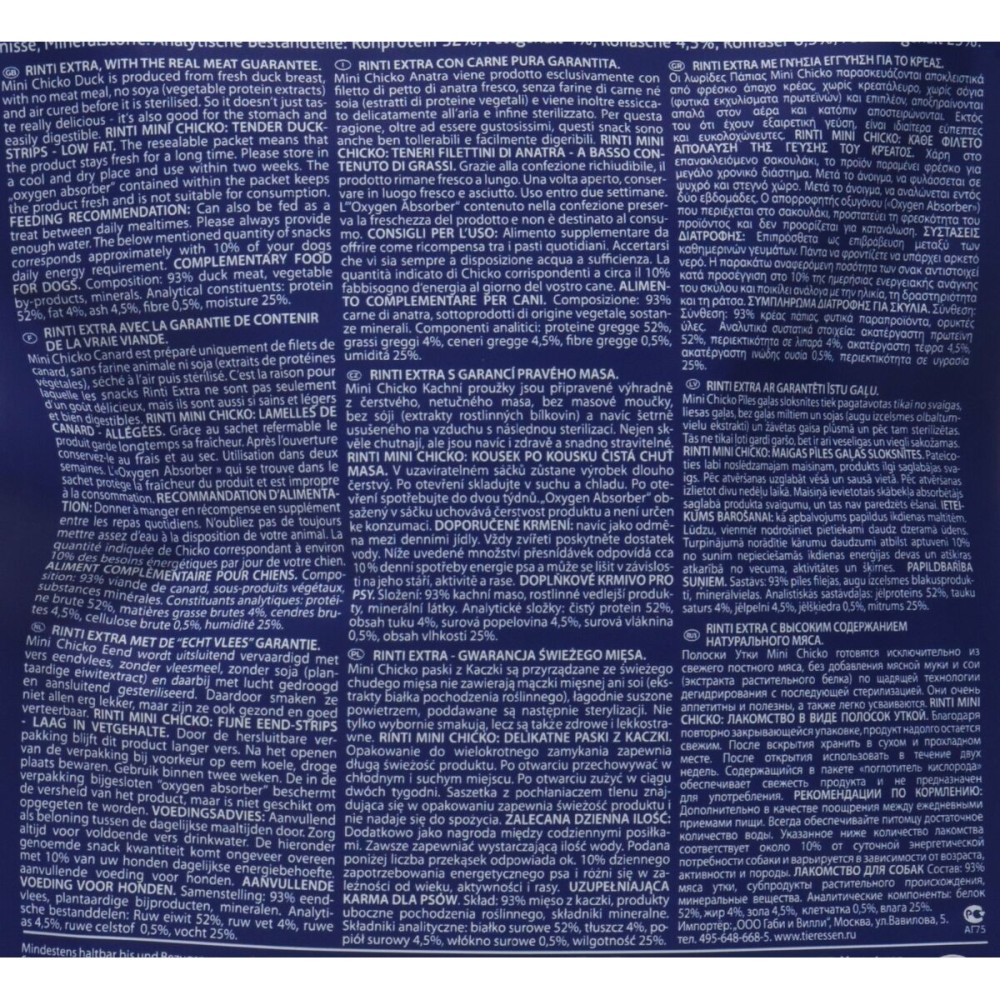 nisse, Mineralstoffe. Analytische Bestandteile: Rohprotein 52%, 4%, Rohasche 4,5%, Rohfaser 0,5% 25%.
GB RINTI EXTRA, WITH THE REAL MEAT GUARANTEE.
Mini Chicko Duck is produced from fresh duck breast,
with no meat meal, no soya (vegetable protein extracts)
and air cured before it is sterilised. So it doesn't just tas-
te really delicious - it's also good for the stomach and
easily digestible. RINTI MINI CHICKO: TENDER DUCK-
STRIPS - LOW FAT. The resealable packet means that
the product stays fresh for a long time. Please store in
a cool and dry place and use within two weeks. The
„oxygen absorber" contained within the packet keeps
the product fresh and is not suitable for consumption.
FEEDING RECOMMENDATION: Can also be fed as a
treat between daily mealtimes. Please always provide
enough water. The below mentioned quantity of snacks
corresponds approximately with 10% of your dogs
daily energy requirement. COMPLEMENTARY FOOD
FOR DOGS. Composition: 93% duck meat, vegetable
by-products, minerals. Analytical constituents: protein
52%, fat 4%, ash 4,5%, fibre 0,5%, moisture 25%.
F RINTI EXTRA AVEC LA GARANTIE DE CONTENIR
DE LA VRAIE VIANDE.
Mini Chicko Canard est préparé uniquement de filets de
canard, sans farine animale ni soja (extraits de protéines
végétales), séché à l'air puis stérilisé. C'est la raison pour
laquelle les snacks Rinti Extra ne sont pas seulement
d'un goût délicieux, mais ils sont aussi si sains et légers
et bien digestibles. RINTI MINI CHICKO: LAMELLES DE
CANARD - ALLÉGÉES. Grâce au sachet refermable le
produit garde longtemps sa fraîcheur. Après l'ouverture
conservez-le au frais et au sec. Utilisation dans deux
semaines. L'«Oxygen Absorber» qui se trouve dans le
sachet protège la fraîcheur du produit et est impropre
à la consommation. RECOMMANDATION D'ALIMENTA-
TION: Donner à manger en récompense en supplément
entre les repas quotidiens. N'oubliez pas de toujours
mettre assez d'eau à la disposition de votre animal. La
quantité indiquée de Chicko correspondant à environ
10% des besoins énergétiques par jour de votre chien.
ALIMENT COMPLÉMENTAIRE POUR CHIENS. Compo-
sition: 93% viande de canard, sous-produits végétaux,
substances minérales. Constituants analytiques: protéi-
ne brute 52%, matières grasse brutes 4%, cendres bru-
tes 4,5%, cellulose brute 0,5%, humidité 25%.
NL RINTI EXTRA MET DE "ECHT VLEES" GARANTIE.
Mini Chicko Eend wordt uitsluitend vervaardigd met
vers eendvlees, zonder vleesmeel, zonder soja (plan-
taardige eiwitextract) en daarbij met lucht gedroogd
en aansluitend gesteriliseerd. Daardoor smaken ze
niet allen erg lekker, maar zijn ze ook gezond en goed
verteerbaar. RINTI MINI CHICKO: FIJNE EEND-STRIPS
- LAAG IN VETGEHALTE. Door de hersluitbare ver-
pakking blijft dit product langer vers. Na het openen
van de verpakking bij voorkeur op een koele, droge
plaats bewaren. Gebruik binnen twee weken. De in de
verpakking bijgesloten "oxygen absorber" beschermt
de versheid van het product, maar is niet geschikt om
opgegeten te worden. VOEDINGSADVIES: Aanvullend
als beloning tussen de dagelijkse maaltijden door. Zorg
altijd voor voldoende vers drinkwater. De hieronder
genoemde snack kwantiteit komt ongeveer overeen
met 10% van uw honden dagelijkse energiebehoefte.
aanvullende voeding voor honden. AANVULLENDE
VOEDING VOOR HONDEN. Samenstelling: 93% eend-
vlees, plantaardige bijproducten, mineralen. Analyti-
sche bestanddelen: Ruw eiwit 52%, ruw vet 4%, ruwe
as 4,5%, ruwe celstof 0,5%, vocht 25%.
Mindestens haltbar bis und
I RINTI EXTRA CON CARNE PURA GARANTITA.
Mini Chicko Anatra viene prodotto esclusivamente con
filetto di petto di anatra fresco, senza farine di carne né
soia (estratti di proteine vegetali) e viene inoltre essicca-
to delicatamente all'aria e infine sterilizzato. Per questa
ragione, oltre ad essere gustosissimi, questi snack sono
anche ben tollerabili e facilmente digeribili. RINTI MINI
CHICKO: TENERI FILETTINI DI ANATRA - A BASSO CON-
TENUTO DI GRASSI. Grazie alla confezione richiudibile, il
prodotto rimane fresco a lungo. Una volta aperto, conser-
vare in luogo fresco e asciutto. Uso entro due settimane.
L'"Oxygen Absorber" contenuto nella confezione preser-
va la freschezza del prodotto e non è destinato al consu-
mo. CONSIGLI PER L'USO: Alimento supplementare da
offrire come ricompensa tra i pasti quotidiani. Accertarsi
che vi sia sempre a disposizione acqua a sufficienza. La
quantità indicato di Chicko corrispondenti a circa il 10%
fabbisogno d'energia al giorno del vostro cane. ALIMEN-
TO COMPLEMENTARE PER CANI. Composizione: 93%
carne di anatra, sottoprodotti di origine vegetale, sostan-
ze minerali. Componenti analitici: proteine gregge 52%,
grassi greggi 4%, ceneri gregge 4,5%, fibre gregge 0,5%,
umidità 25%.
CZ RINTI EXTRA S GARANCÍ PRAVÉHO MASA.
Mini Chicko Kachní proužky jsou připravené výhradně
z čerstvého, netučného masa, bez masové moučky,
bez sóji (extrakty rostlinných bílkovin) a navíc šetrně
usušeného na vzduchu s následnou sterilizací. Nejen sk-
věle chutnají, ale jsou navíc i zdravé a snadno stravitelné.
RINTI MINI CHICKO: KOUSEK PO KOUSKU ČISTÁ CHUŤ
MASA. V uzavíratelném sáčků zůstane výrobek dlouho
čerstvý. Po otevření skladujte v suchu a chladu. Po ote-
vření spotřebujte do dvou týdnů. „Oxygen Absorber" ob-
sažený v sáčku uchovává čerstvost produktu a není určen
ke konzumaci. DOPORUČENÉ KRMENÍ: navíc jako odmě-
na mezi denními jídly. Vždy zvířeti poskytněte dostatek
vody. Níže uvedené množství přesnídávek odpovídá cca
10% denní spotřeby energie psa a může se lišit v závislos-
ti na jeho stáří, aktivitě a rase. DOPLŇKOVÉ KRMIVO PRO
PSY. Složení: 93% kachní maso, rostlinné vedlejší produk-
ty, minerální látky. Analytické složky: čistý protein 52%,
obsah tuku 4%, surová popelovina 4,5%, surová vláknina
0,5%, obsah vlhkosti 25%.
PL RINTI EXTRA - GWARANCJA ŚWIEŻEGO MIĘSA.
Mini Chicko paski z Kaczki są przyrządzane ze świeżego
chudego mięsa nie zawierają mączki mięsnej ani soi (eks-
trakty białka pochodzenia roślinnego), łagodnie suszone
powietrzem, poddawane są następnie sterylizacji. Nie
tylko wybornie smakują, lecz są także zdrowe i lekkostra-
wne. RINTI MINI CHICKO: DELIKATNE PASKI Z KACZKI.
Opakowanie do wielokrotnego zamykania zapewnia
długą świeżość produktu. Po otwarciu przechowywać w
chłodnym i suchym miejscu. Po otwarciu zużyć w ciągu
dwóch tygodni. Saszetka z pochłaniaczem tlenu znaj-
dująca się w opakowaniu zapewnia świeżość produktu i
nie nadaje się do spożycia. ZALECANA DZIENNA ILOŚĆ:
Dodatkowo jako nagroda między codziennymi posiłka-
mi. Zawsze zapewniać wystarczającą ilość wody. Podana
poniżej liczba przekąsek odpowiada ok. 10% dziennego
zapotrzebowania energetycznego psa i różni się w za-
leżności od wieku, aktywności i rasy. UZUPEŁNIAJĄCA
KARMA DLA PSÓW. Skład: 93% mięso z kaczki, produkty
uboczne pochodzenia roślinnego, składniki mineralne.
Składniki analityczne: białko surowe 52%, tłuszcz 4%, po-
piół surowy 4,5%, włókno surowe 0,5%, wilgotność 25%.
GR RINTI EXTRA ΜΕ ΓΝΗΣΙΑ ΕΓΓΥΗΣΗ ΓΙΑ ΤΟ ΚΡΕΑΣ.
Οι λωρίδες Πάπιας Mini Chicko παρασκευάζονται αποκλειστικά
από φρέσκο άπαχο κρέας, χωρίς κρεατάλευρο, χωρίς σόγια
(φυτικά εκχυλίσματα πρωτεϊνών) και επιπλέον, αποξηραίνονται
απαλά στον αέρα και κατόπιν αποστειρώνονται. Εκτός
του ότι έχουν εξαιρετική γεύση, είναι ιδιαίτερα εύπεπτες
και ευκολοχώνευτες. RINTI MINI CHICKO: ΚΑΘΕ ΦΙΛΕΤΟ
ΑΠΟΛΑΥΣΗ ΤΗΣ ΓΕΥΣΗΣ ΤΟΥ ΚΡΕΑΤΟΣ. Χάρη στο
επανακλειόμενο σακουλάκι, το προϊόν παραμένει φρέσκο για
μεγάλο χρονικό διάστημα. Μετά το άνοιγμα, να φυλάσσεται σε
ψυχρό και στεγνό χώρο. Μετά το άνοιγμα, να αναλώνεται εντός
δύο εβδομάδες. Ο απορροφητής οξυγόνου («Oxygen Absorber»)
που περιέχεται στο σακουλάκι, προστατεύει τη φρεσκότητα του
προϊόντος και δεν προορίζεται για κατανάλωση. ΣΥΣΤΑΣΕΙΣ
ΔΙΑΤΡΟΦΗΣ: Επιπρόσθετα ως επιβράβευση μεταξύ των
καθημερινών γευμάτων. Πάντα να φροντίζετε να υπάρχει αρκετό
νερό. Η παρακάτω αναφερόμενη ποσότητα των σνακ αντιστοιχεί
κατά προσέγγιση στο 10% της ημερήσιας ενεργειακής ανάγκης
του σκύλου και ποικίλει ανάλογα με την ηλικία, τη δραστηριότητα
και τη ράτσα. ΣΥΜΠΛΗΡΩΜΑ ΔΙΑΤΡΟΦΗΣ ΓΙΑ ΣΚΥΛΙΑ. Σύνθεση:
Σύνθεση: 93% κρέας πάπιας φυτικά παραπροϊόντα, ορυκτές
ύλες. Αναλυτικά συστατικά στοιχεία: ακατέργαστη πρωτεΐνη
52%, περιεκτικότητα σε λιπαρά 4%, ακατέργαστη τέφρα 4,5%,
ακατέργαστη ινώδης ουσία 0,5%, περιεκτικότητα σε υγρασία
25%.
LV RINTI EXTRA AR GARANTĒTI ĪSTU GAĻU.
Mini Chicko Pīles gaļas sloksnītes tiek pagatavotas tikai no svaigas,
liesas gaļas, bez gaļas miltiem un sojas (augu izcelsmes olbaltum-
vielu ekstrakti) un žāvētas gaisa plūsmā un pēc tam sterilizētas.
Tās ne tikai ļoti gardi garšo, bet ir arī veselīgas un viegli sakožamas.
RINTI MINI CHICKO: MAIGAS PĪLES GAĻAS SLOKSNĪTES. Pateico-
ties labi noslēdzamajam maisiņam, produkts ilgi saglabājas sva-
igs. Pēc atvēršanas uzglabāt vēsā un sausā vietā. Pēc atvēršanas
izlietot divu nedēļu laikā. Maisiņā ievietotais skābekļa absorbētājs
saglabā produkta svaigumu, un tas nav paredzēts ēšanai. IETEI-
KUMS BAROŠANAI: kā apbalvojums papildus ikdienas maltītēm.
Lūdzu, vienmēr nodrošiniet pietiekami daudz dzeramā ūdens.
Turpinājumā norādītie kārumu daudzumi atbilst aptuveni 10%
no suņim nepieciešamās ikdienas enerģijas devas un atšķiras
atkarībā no vecuma, aktivitātes un šķirnes. PAPILDBARĪBA
SUŅIEM. Sastāvs: 93% pīles filejas, augu izcelsmes blakusproduk-
ti, minerālvielas. Analistiskās sastāvdaļas: jēlproteīns 52%, tauku
saturs 4%, jēlpelni 4,5%, jēlšķiedra 0,5%, mitrums 25%.
RUS RINTI EXTRA С ВЫСОКИМ СОДЕРЖАНИЕМ
НАТУРАЛЬНОГО МЯСА.
Полоски Утки Mini Chicko готовятся исключительно из
свежего постного мяса, без добавления мясной муки и сои
(экстракта растительного белка) по щадящей технологии
дегидрирования с последующей стерилизацией. Они очень
аппетитны и полезны, а также легко усваиваются. RINTI MINI
CHICKO: ЛАКОМСТВО В ВИДЕ ПОЛОСОК УТКОЙ. Благодаря
повторно закрывающейся упаковке, продукт надолго остается
свежим. После вскрытия хранить в сухом и прохладном
месте. После открытия использовать в течение двух
недель. Содержащийся в пакете «поглотитель кислорода»
обеспечивает свежесть продукта и не предназначен
для употребления. РЕКОМЕНДАЦИИ ПО КОРМЛЕНИЮ:
Дополнительно в качестве поощрения между ежедневными
приемами пищи. Всегда обеспечивайте питомцу достаточное
количество воды. Указанное ниже количество лакомства
соответствует около 10% от суточной энергетической
потребности собаки и варьируется в зависимости от возраста,
активности и породы. ЛАКОМСТВО ДЛЯ СОБАК Состав: 93%
мяса утки, субпродукты растительного происхождения,
минеральные вещества. Аналитические компоненты: белок
52%, жир 4%, зола 4,5%, клетчатка 0,5%, влага 25%.
Импортёр:„ООО Габи и Вилли", Москва, ул.Вавилова, 5.
тел. 495-648-668-5. www.tieressen.ru
АГ75